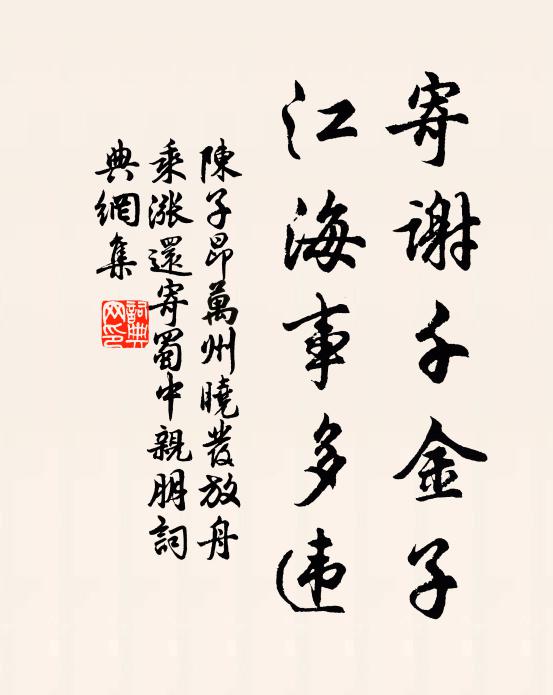 寄谢千金子
江海事多违
陳子昂萬州曉發放舟
乘漲還寄蜀中親朋詞
典網集
詞典
网印